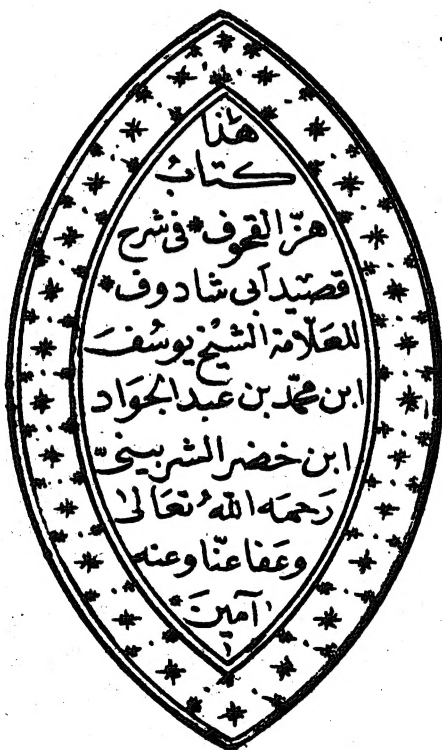 هذا
كتاب
هزّ القحوف * فى شرح
قصيد أبى شادوف *
للعلّامة الشيخ يوسف
ابن محمّد بن عبد الجواد
ابن خضر الشربينىّ
رَحمَه اللهُ تعَالىٰ
وعَفا عنّا وعنه
آمين